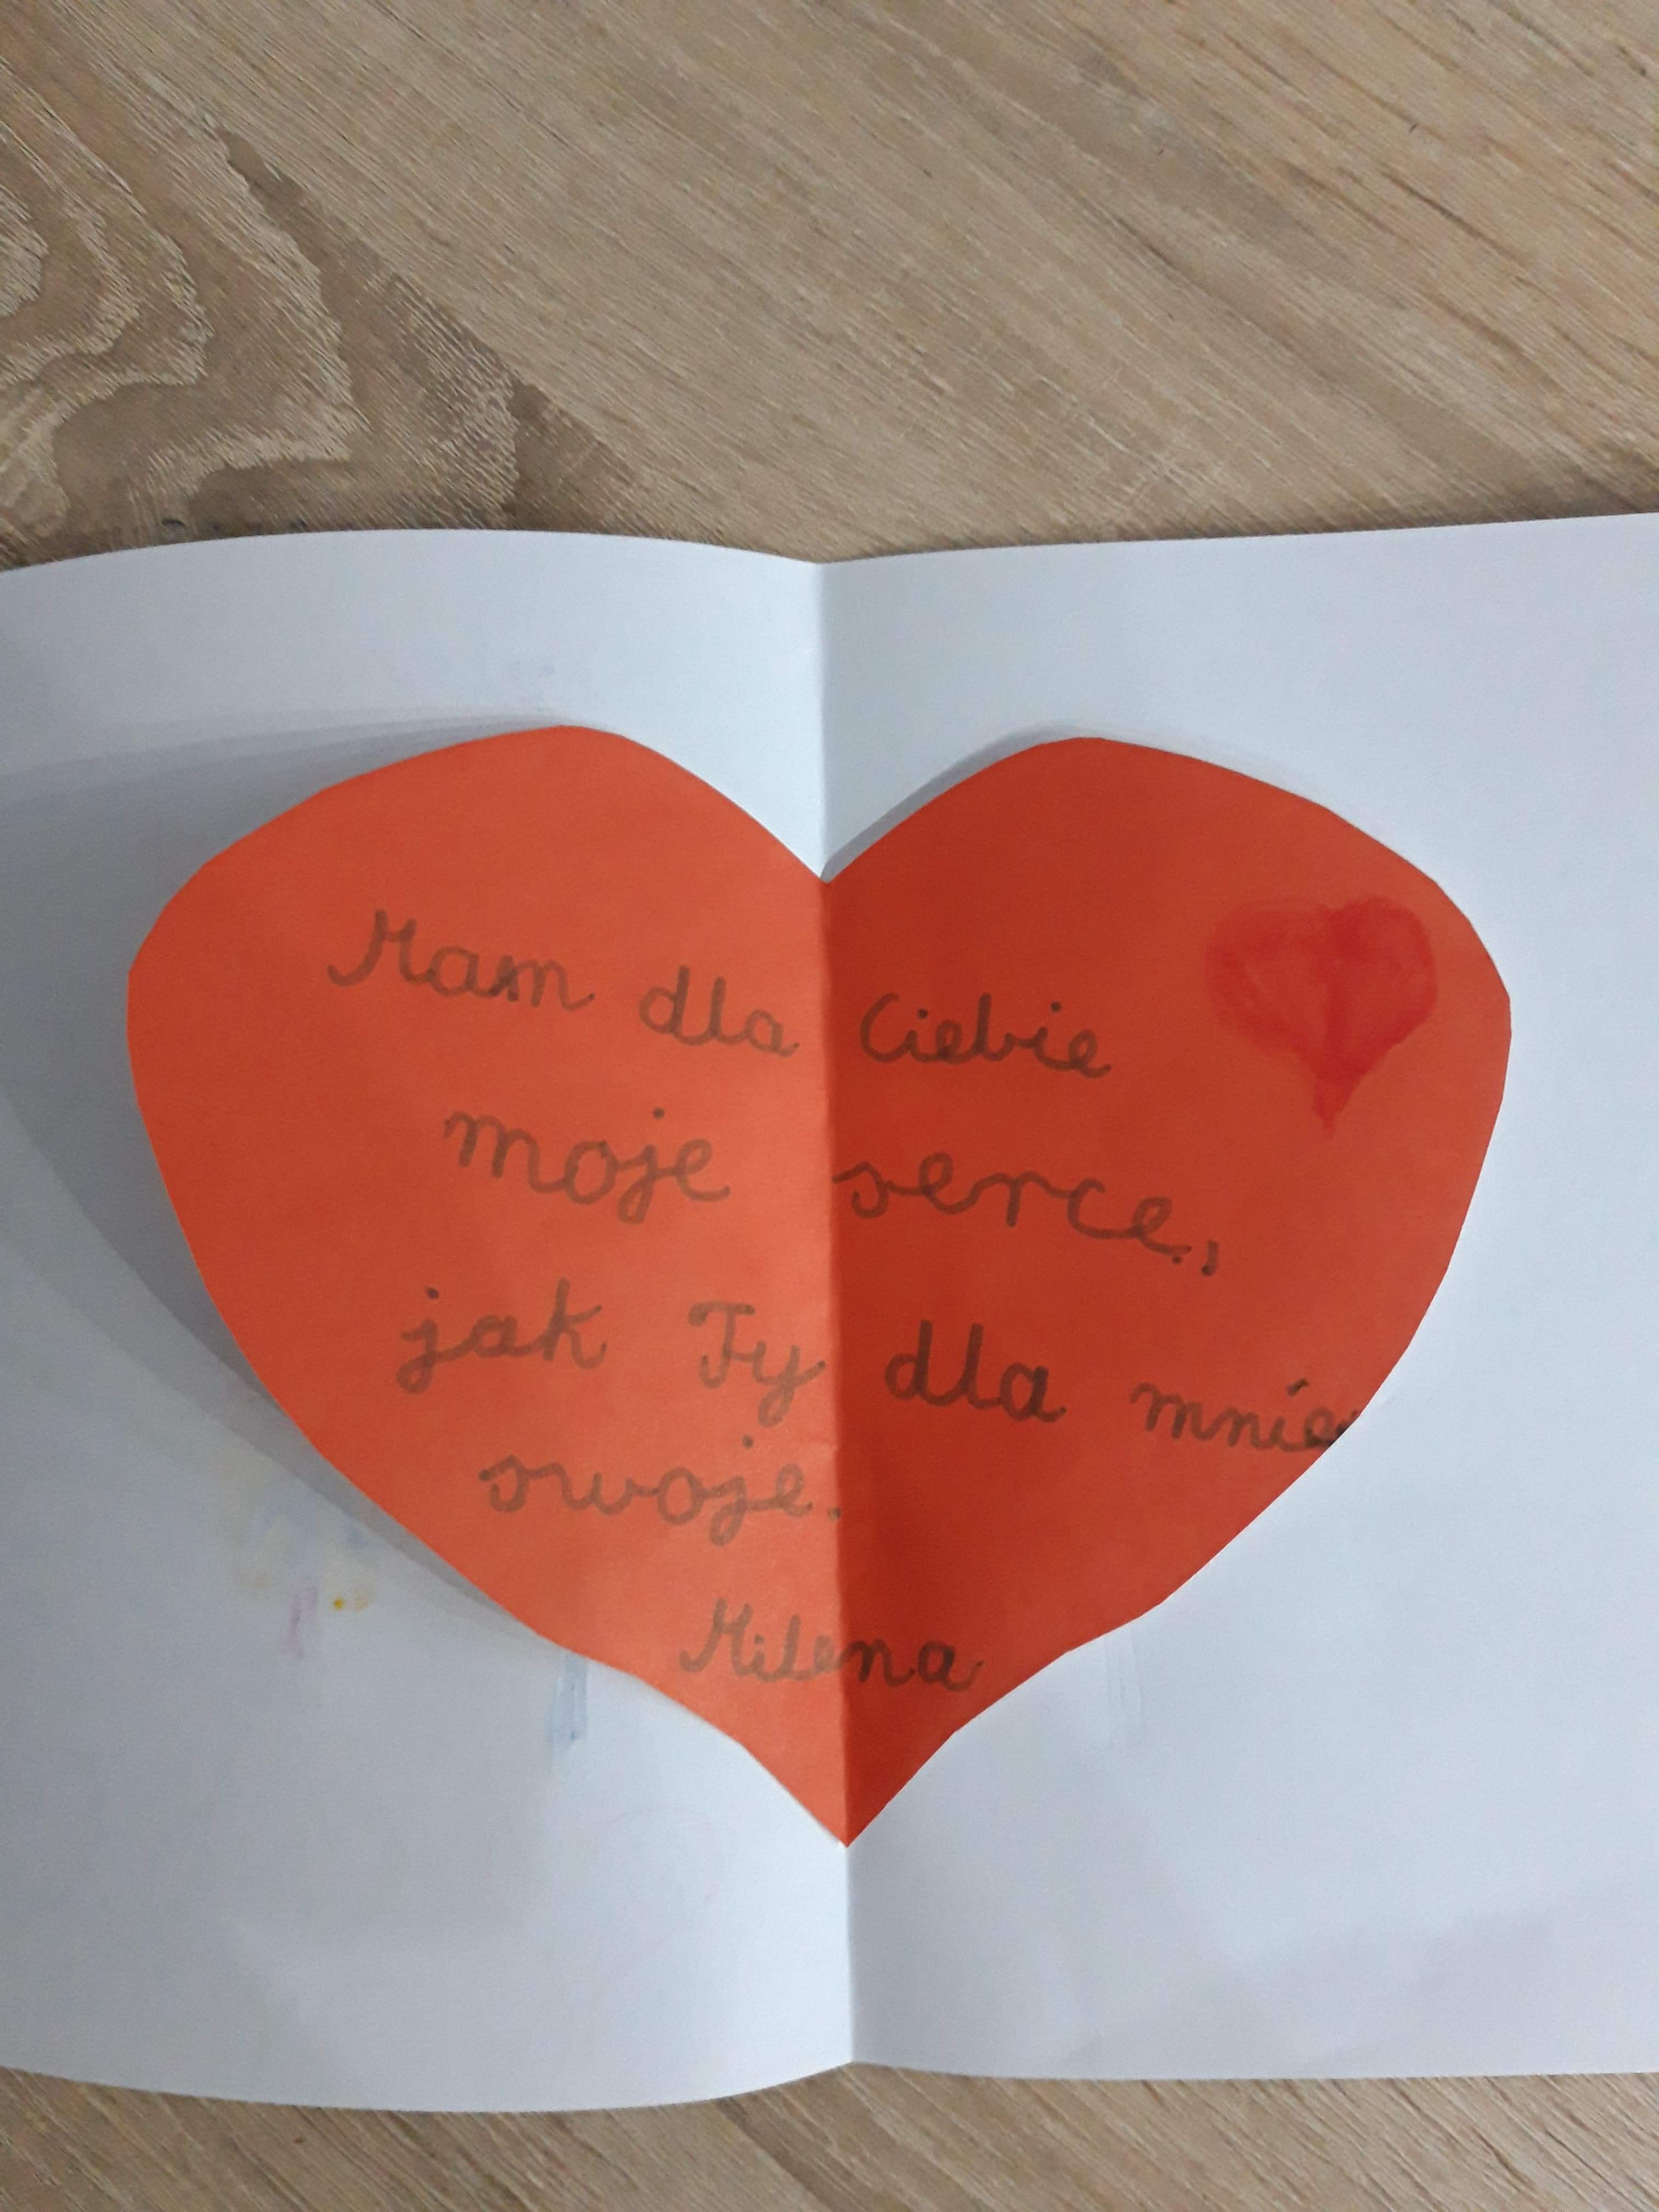 Mam dla Ciebie
moje serce,
jak Ty dla mnie
swoje.
Milena